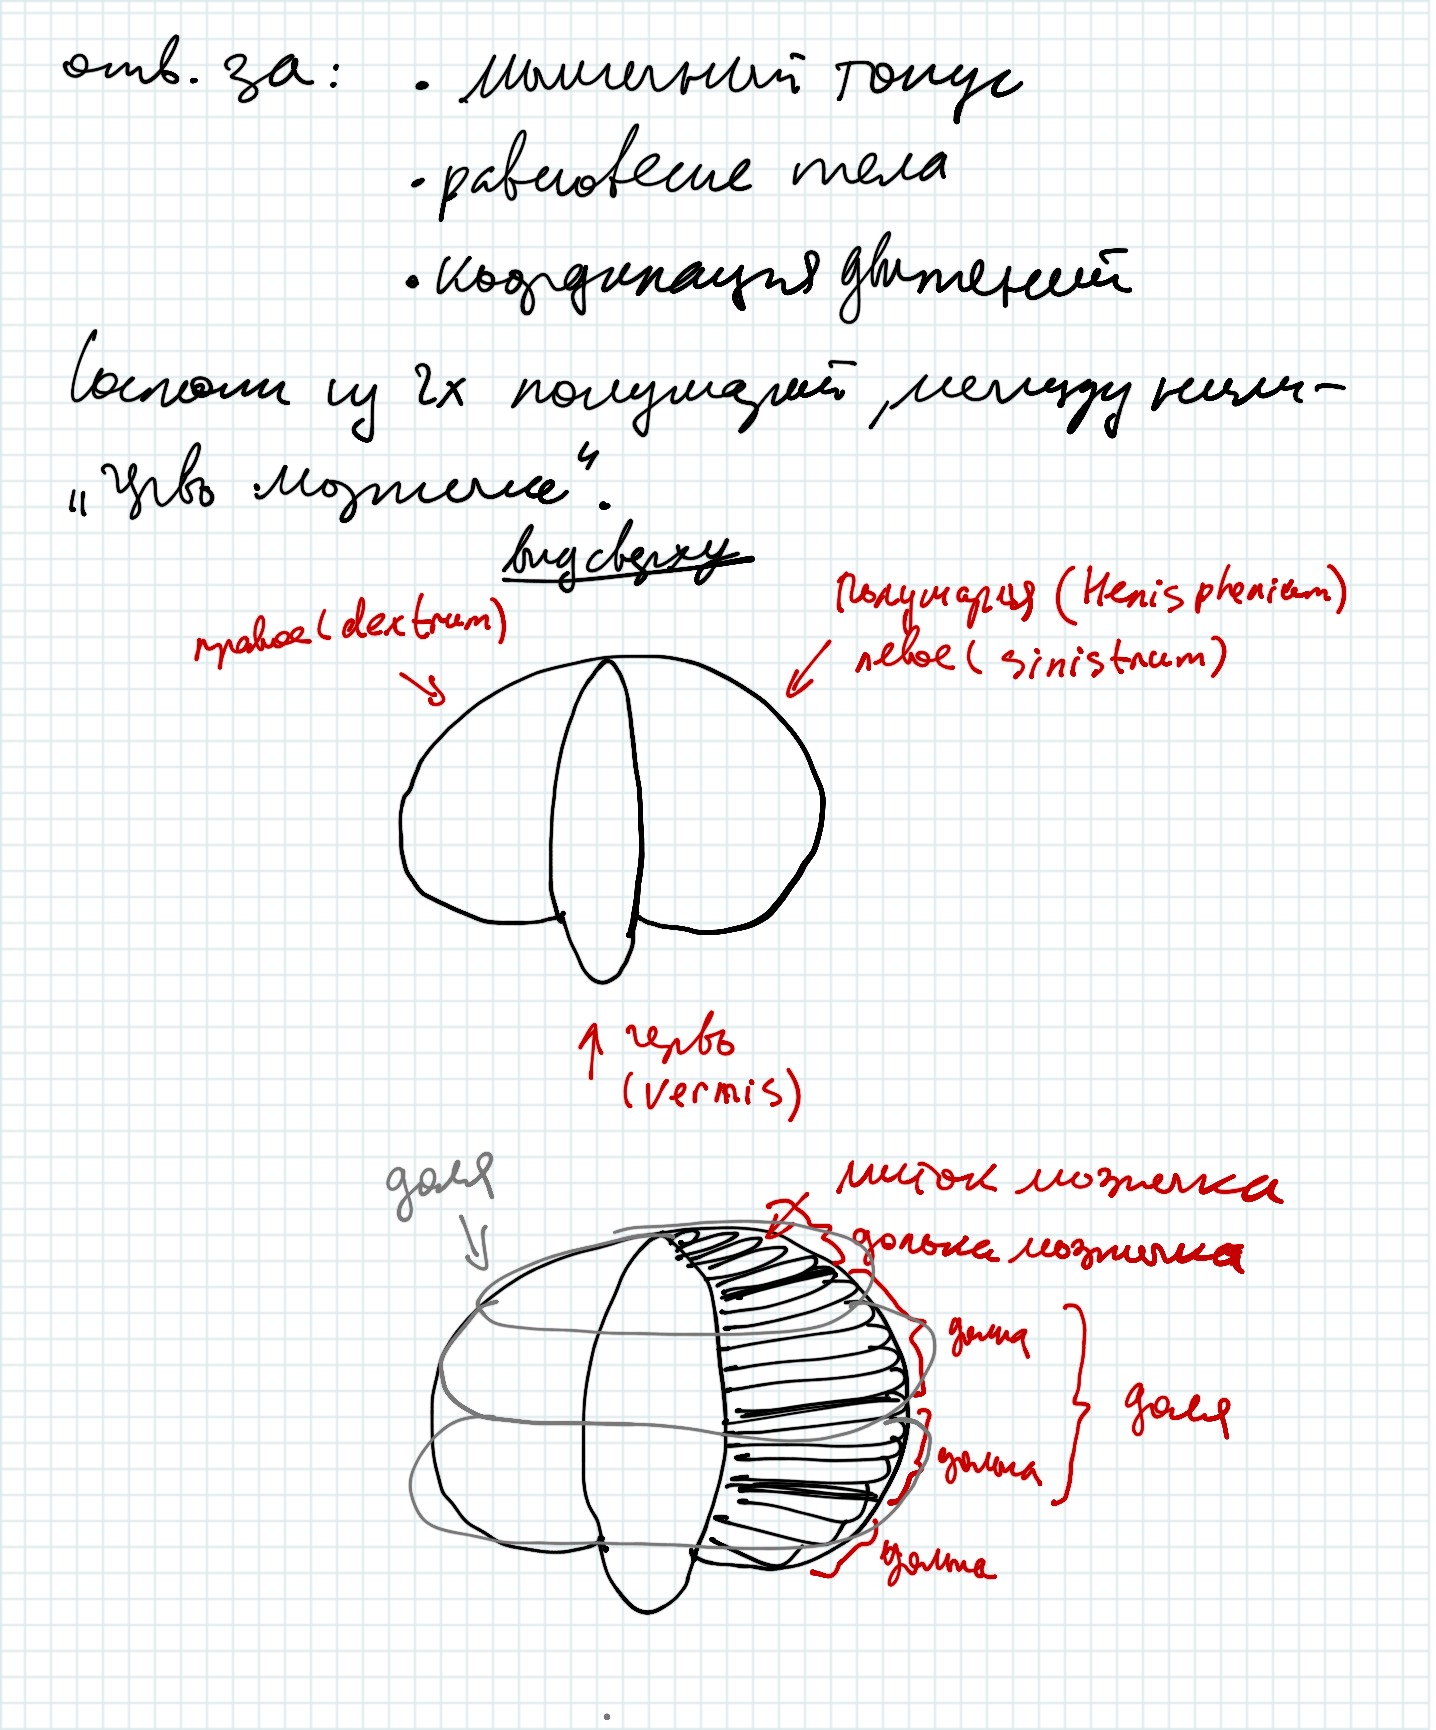 отв. за: · мышечный тонус
· равновесие тела
· координация движений
Состоит из 2х полушарий, между ними -
„червь мозжечка“.
вид сверху
Полушария (Hemispherium)
правое (dextrum)
левое (sinistrum)
червь
(vermis)
доля
листок мозжечка
долька мозжечка
долька
доля
долька
долька